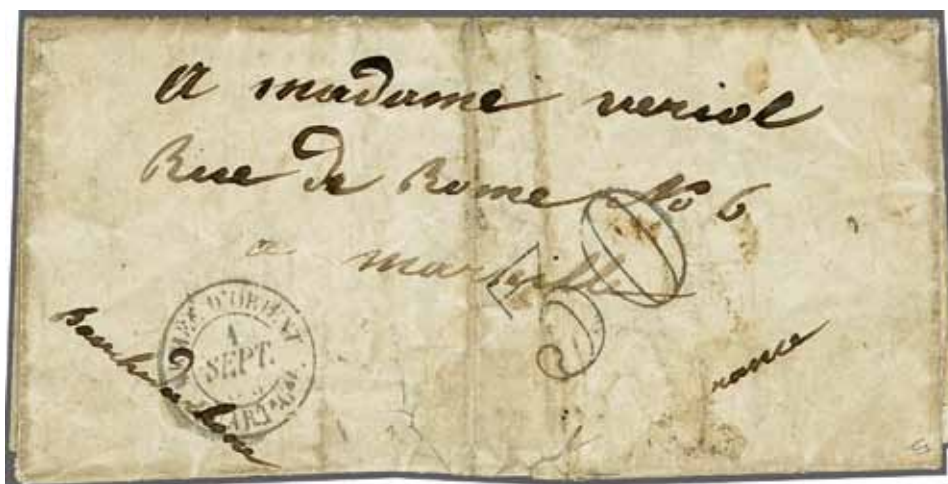 A madame veriol
Rue de Rome No 6
a marseille
30
D'ORIENT
1
SEPT.
rance